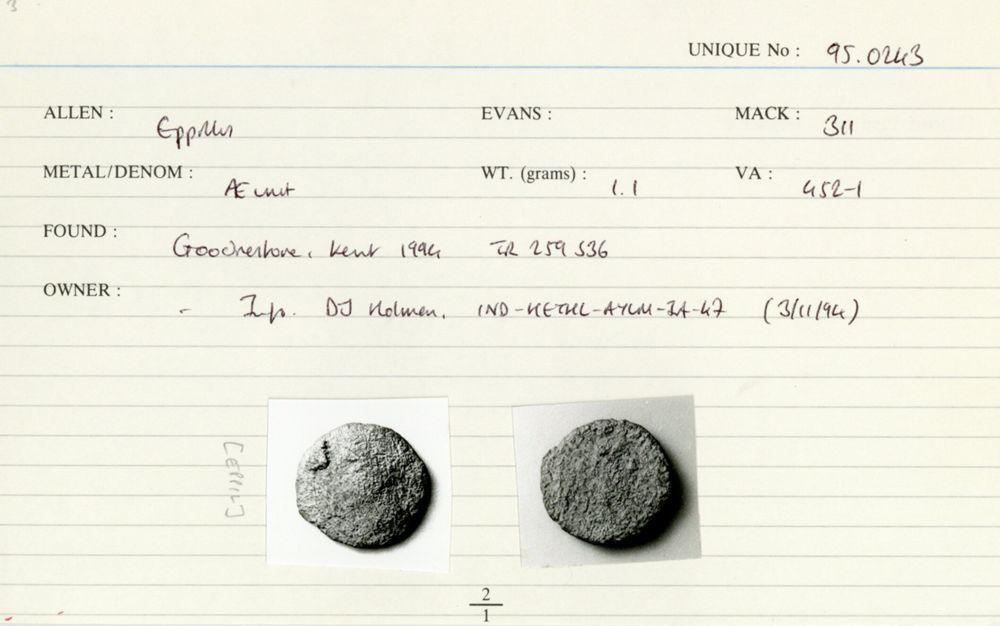 3
UNIQUE No : 95.0243
ALLEN : Eppillus EVANS : MACK : 311
METAL/DENOM : Æ unit WT. (grams) : 1.1 VA : 452-1
FOUND : Goodnestone, Kent 1994 TR 259 536
OWNER : - Inf. DJ Holman,
(3/11/94)
[EPPIL]
2
1